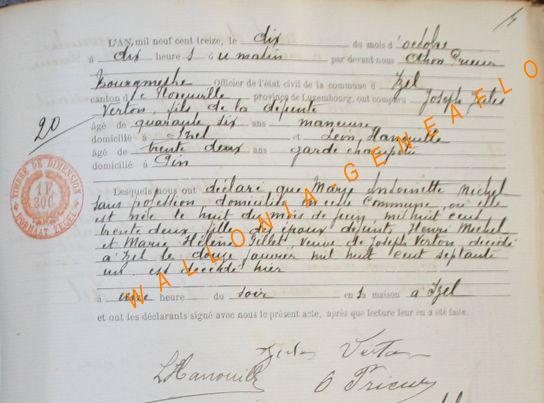 L'AN, mil neuf cent treize, le dix du mois d'octobre
à dix heures du matin par devant nous Othon Prieur
Bourgmestre Officier de l'état civil de la commune d' Izel
canton de Florenville province de Luxembourg, ont comparu Joseph Jules
Verton, fils de la défunte
âgé de quarante six ans manœuvre
domicilié à Izel et Léon Hanouille
âgé de trente deux ans garde champêtre
domicilié à Pin
20
Lesquels nous ont déclaré que Marie Antoinette Michel
sans profession domiciliée en cette Commune, où elle
est née le huit du mois de juin, mil huit cent
trente deux, fille des époux défunts, Henri Michel
et Marie Hélène Gillet, veuve de Joseph Verton décédé
à Izel le douze janvier mil huit cent septante
un est décédée hier
à onze heures du soir en sa maison à Izel
et ont les déclarants signé avec nous le présent acte, après que lecture leur en a été faite.
Jules Verton
LHanouille O Prieur
TIMBRE DE DIMENSION
1F
30C.
WALLONIAGENEAFLO